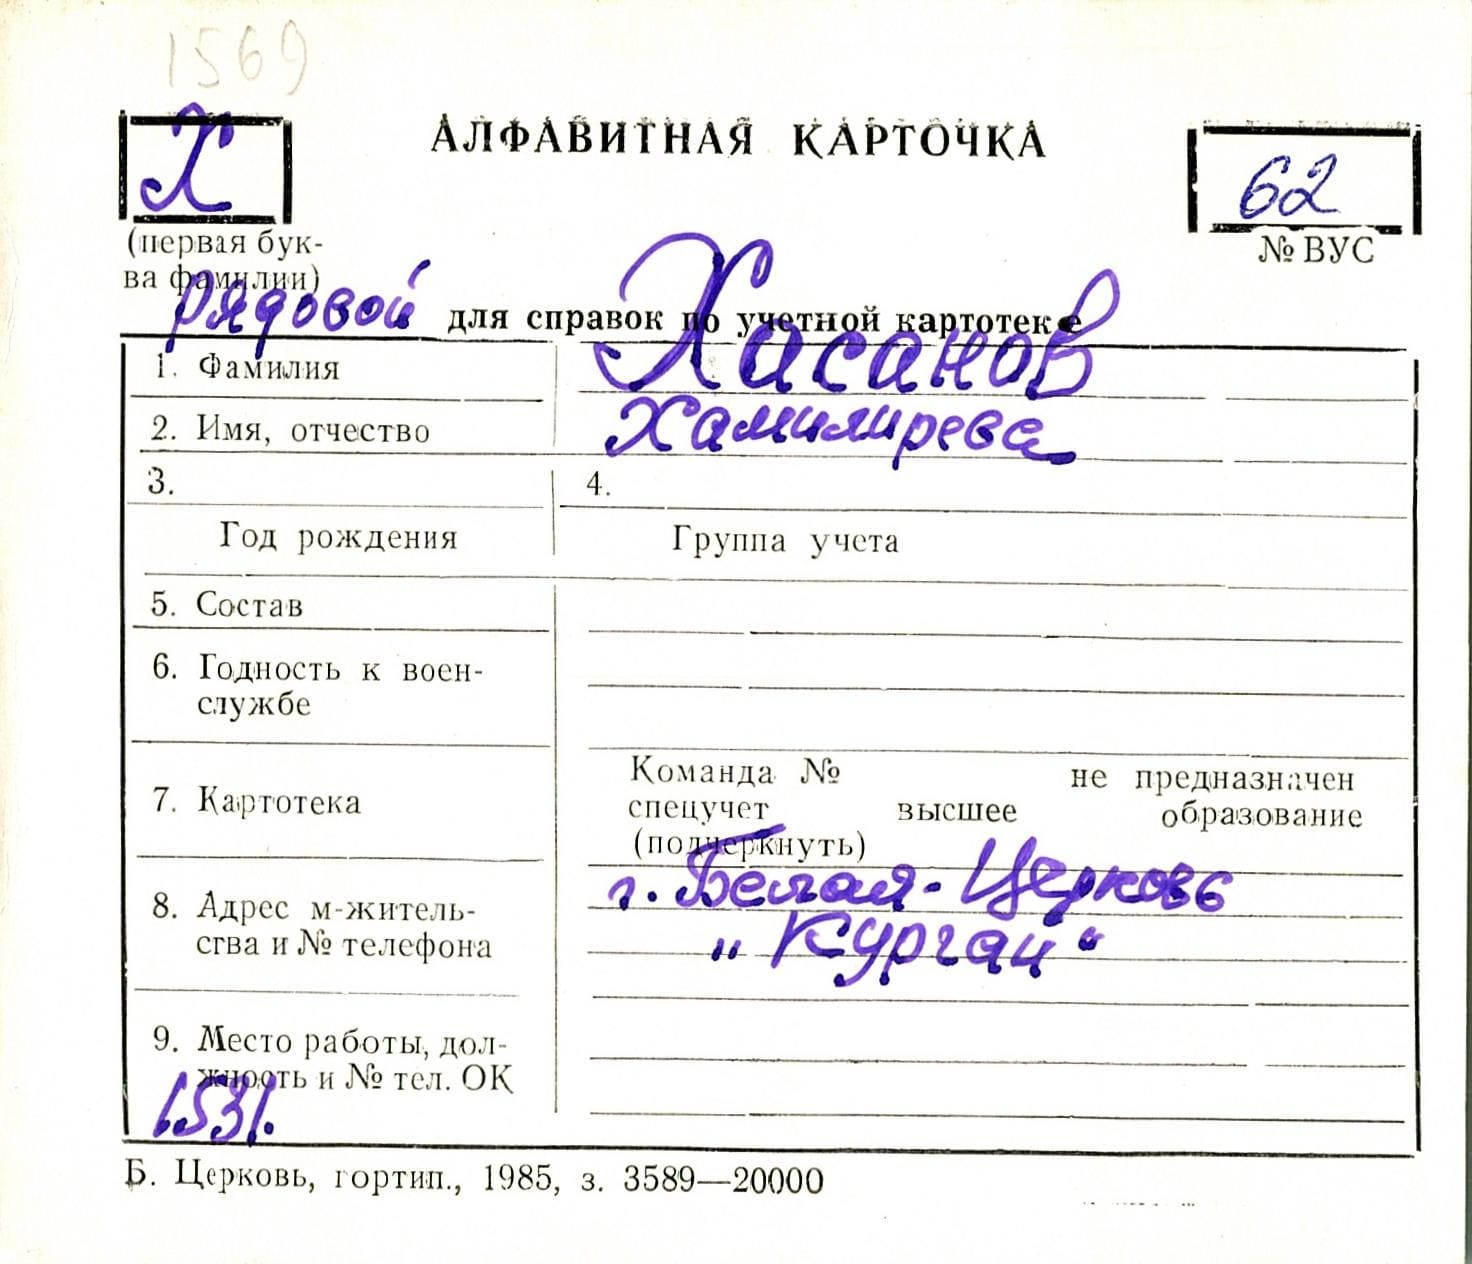 1569
Х
АЛФАВИТНАЯ КАРТОЧКА
62
(первая бук-
ва фамилии)
№ ВУС
рядовой
для справок по учетной картотеке
1. Фамилия Хасанов
2. Имя, отчество Хамилирева
3. 4.
Год рождения Группа учета
5. Состав
6. Годность к воен-
службе
7. Картотека
Команда № не предназначен
спецучет высшее образование
(подчеркнуть)
8. Адрес м-житель-
ства и № телефона
г. Белая-Церковь
„Курган“
9. Место работы, дол-
жность и № тел. ОК
1531.
Б. Церковь, гортип., 1985, з. 3589—20000